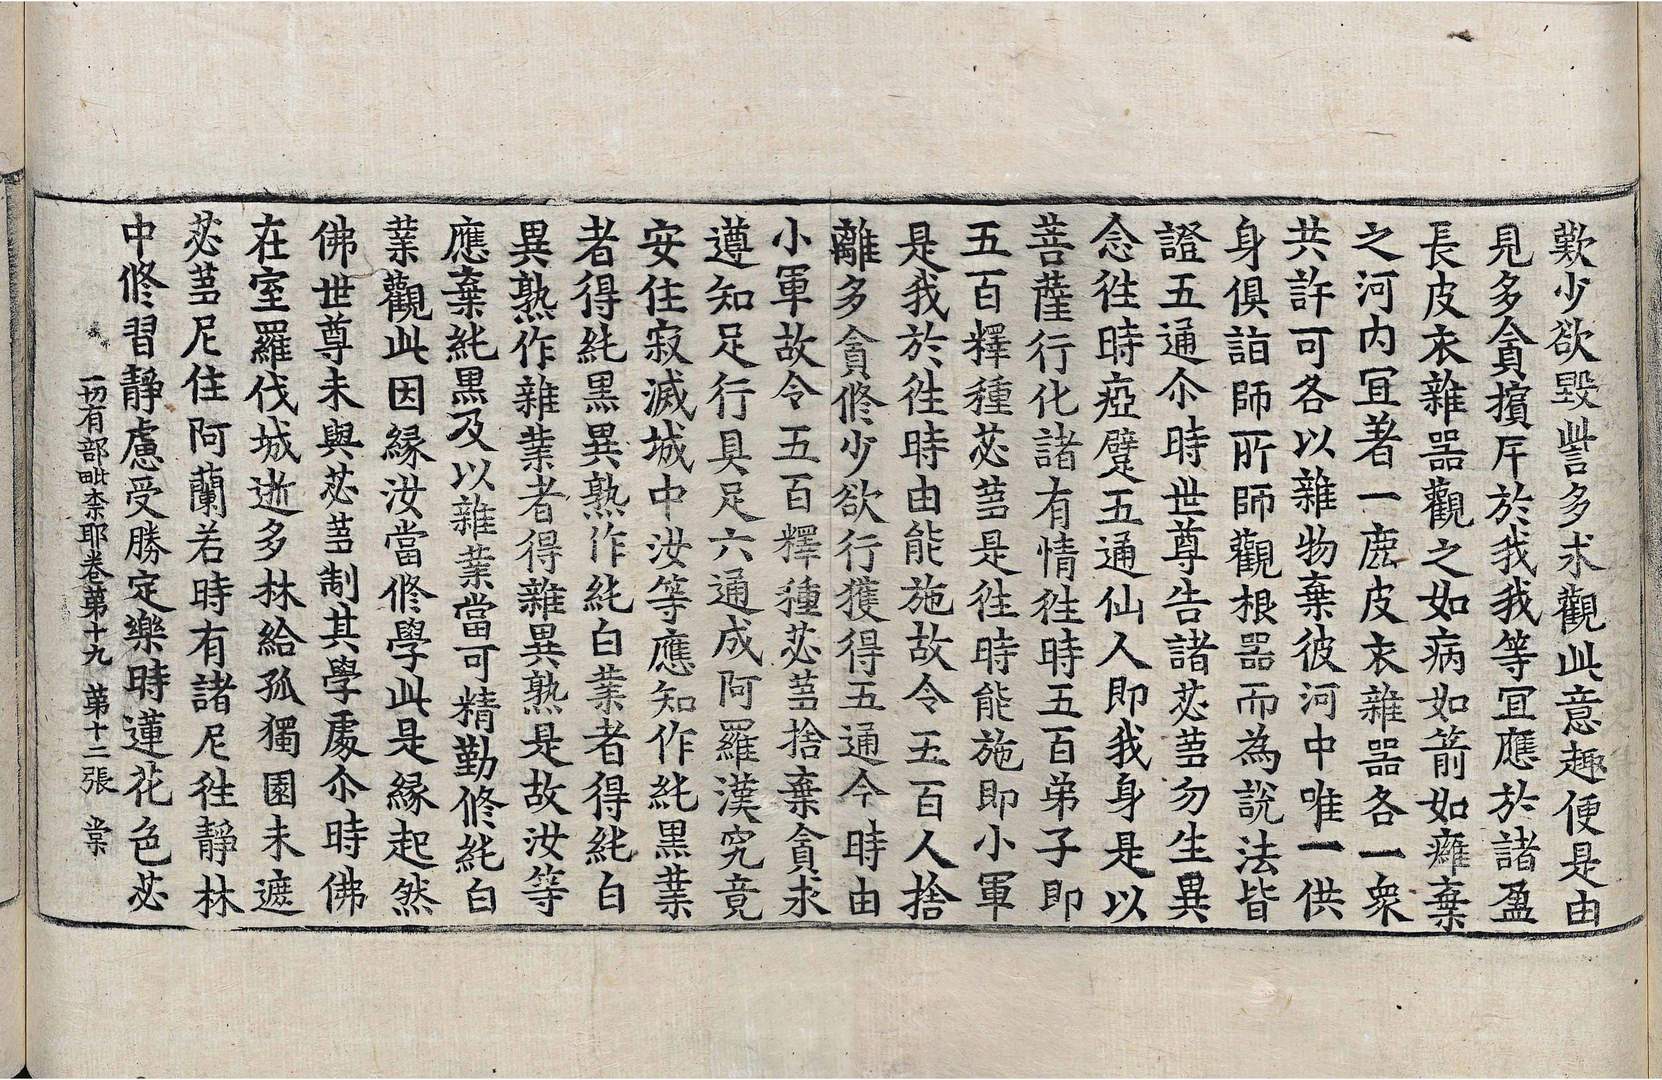 歎少欲毀訾多求觀此意趣便是由
見多貪擯斥於我我等宜應於諸盈
長皮衣雜器觀之如病如箭如癰棄
之河內宜著一鹿皮衣雜器各一衆
共許可各以雜物棄彼河中唯一供
身俱詣師所師觀根器而為說法皆
證五通尒時世尊告諸苾蒭勿生異
念往時瘂躄五通仙人即我身是以
菩薩行化諸有情往時五百弟子即
五百釋種苾蒭是往時能施即小軍
是我於往時由能施故令五百人捨
離多貪修少欲行獲得五通今時由
小軍故令五百釋種苾蒭捨棄貪求
遵知足行具足六通成阿羅漢究竟
安住寂滅城中汝等應知作純黑業
者得純黑異熟作純白業者得純白
異熟作雜業者得雜異熟是故汝等
應棄純黑及以雜業當可精勤修純白
業觀此因緣汝當修學此是緣起然
佛世尊未與苾蒭制其學處尒時佛
在室羅伐城逝多林給孤獨園未遮
苾蒭尼住阿蘭若時有諸尼往靜林
中修習靜慮受勝定樂時蓮花色苾
一切有部毗柰耶卷第十九 第十二張 棠